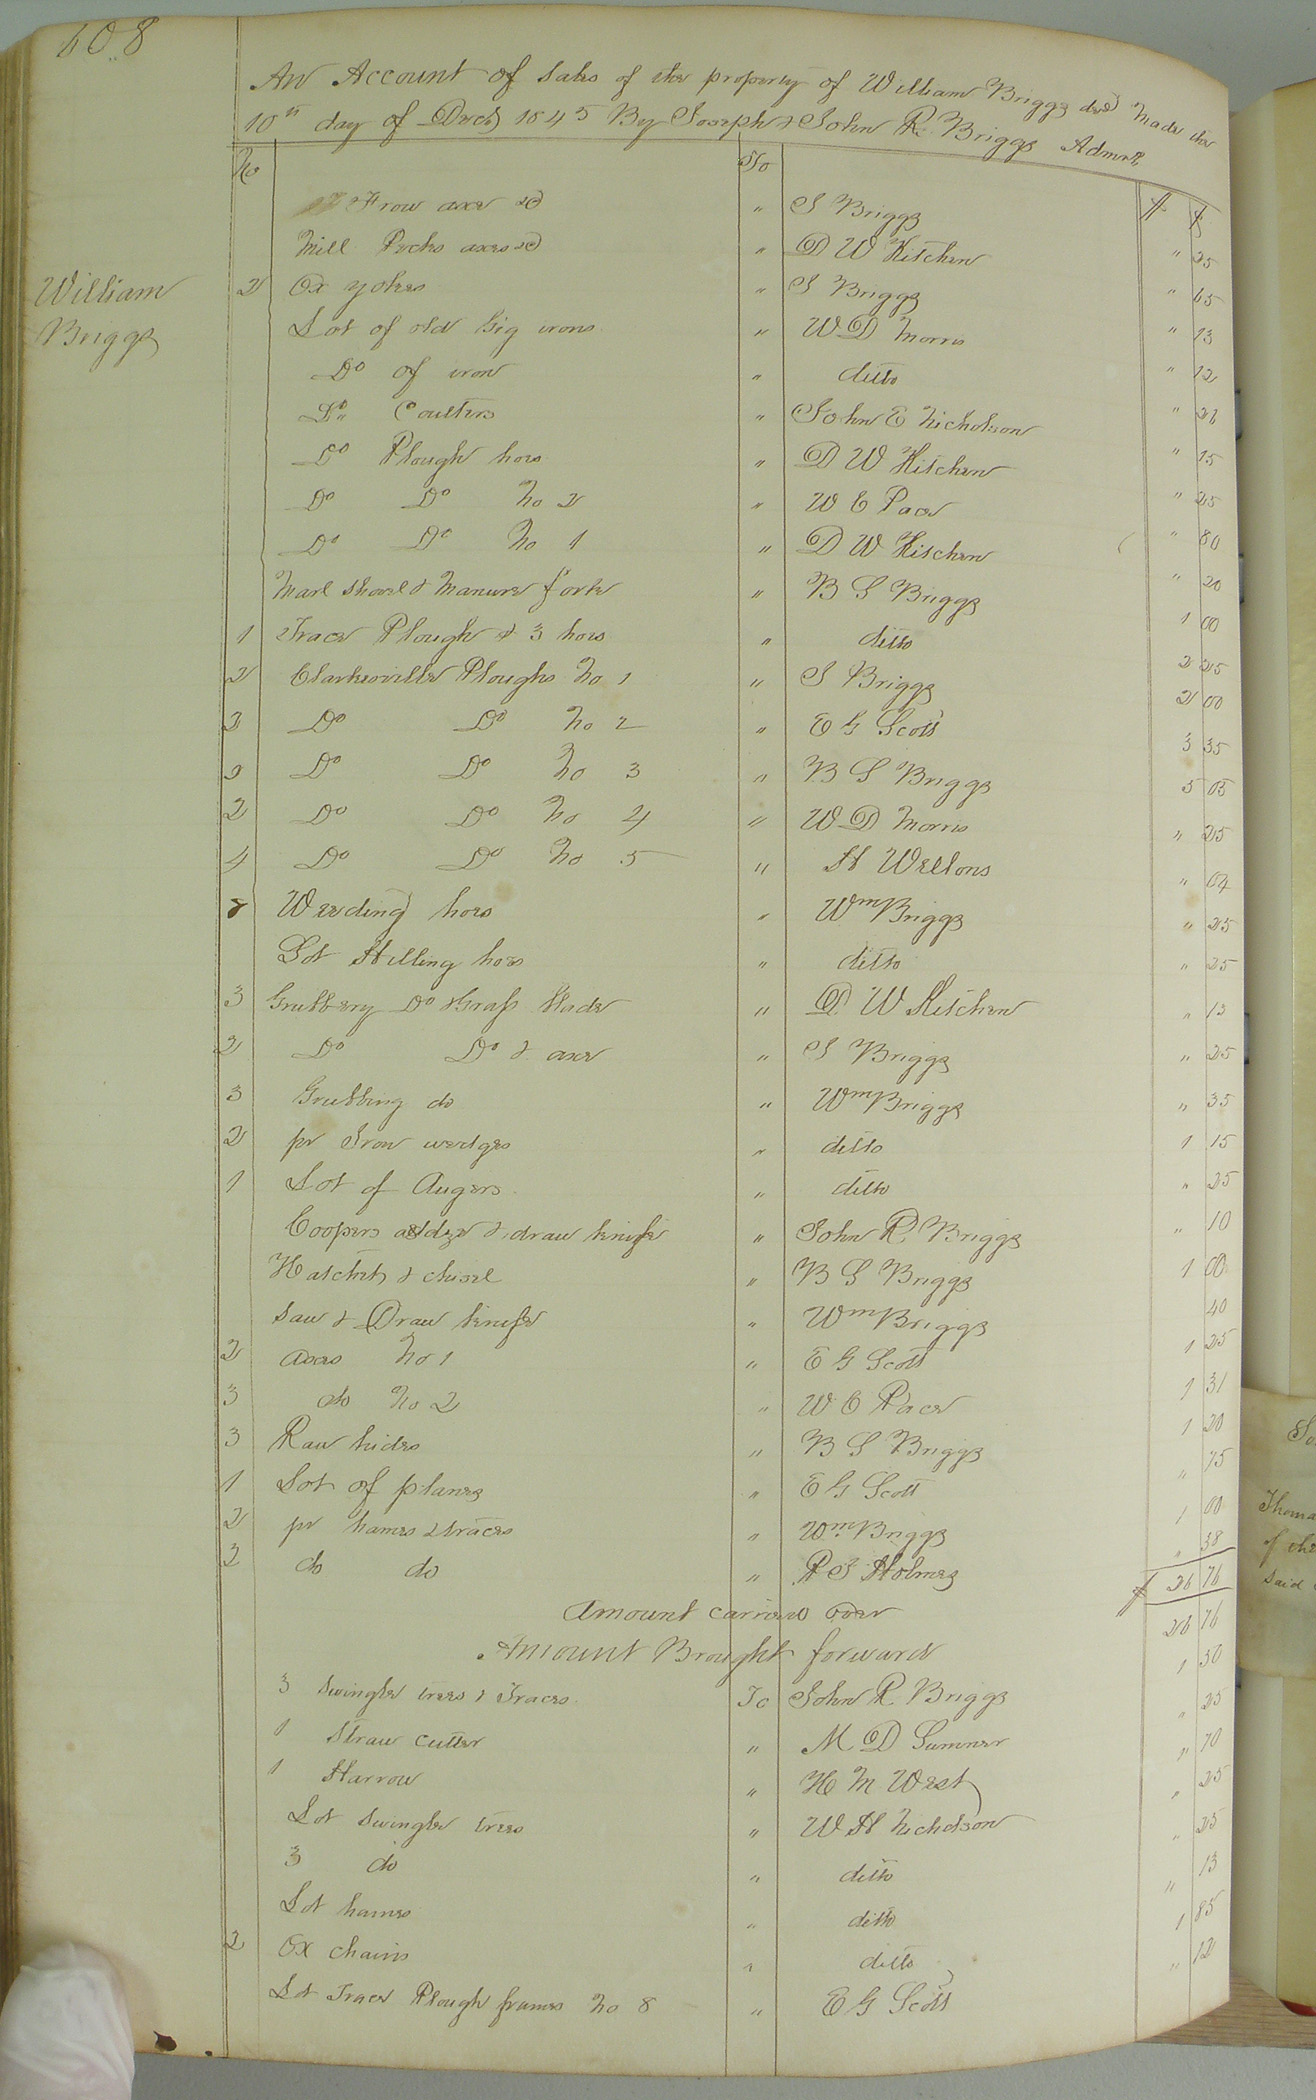 608
An Account of Sales of the property of William Briggs decd Made the
10th day of Decb 1845 By Joseph & John R. Briggs Admrs
No To $ ¢
Frow axe &c " S Briggs " 25
Mill Pecks axes &c " D W Kitchen " 65
William
Briggs
2 Ox yokes " S Briggs " 13
Lot of old Gig irons " W D Morris " 12
Do of iron " ditto " 26
Do Coulters " John E Nicholson " 15
Do Plough hoes " D W Kitchen " 25
Do Do No 2 " W E Pace " 80
Do Do No 1 " D W Kitchen " 20
Marl Shovel & Manure fork " B S Briggs 1 00
1 Trace Plough & 3 hoes " ditto 2 25
2 Clarksville Ploughs No 1 " S Briggs 2 00
2 Do Do No 2 " E G Scott 3 35
2 Do Do No 3 " B S Briggs 5 05
2 Do Do No 4 " W D Morris " 25
4 Do Do No 5 " H Wellons " 04
8 Weeding hoes " Wm Briggs " 25
Lot Hilling hoes " ditto " 25
3 Grubbery Do & Grass blade " D. W Kitchen " 13
2 Do Do & axe " S Briggs " 25
3 Grubbing do " Wm Briggs " 35
2 pr Iron wedges " ditto 1 15
1 Lot of Augers " ditto " 25
Coopers addze & draw knife " John R. Briggs " 10
Hatchet & chisel " B S Briggs 1 00
Saw & Draw knife " Wm Briggs 40
2 axes No 1 " E G Scott 1 25
3 do No 2 " W E Pace 1 31
3 Raw hides " B S Briggs 1 20
1 Lot of planes " E G Scott " 75
2 pr hames & traces " Wm Briggs 1 00
2 do do " R S Holmes " 38
$ 26 76
Amount carried over 26 76
Amount Brought forward
3 Swingle trees & Traces To John R. Briggs 1 50
1 Straw cutter " M D Sumner " 25
1 Harrow " H M West " 70
Lot Swingle trees " W H Nicholson " 25
3 do " ditto " 25
Lot hames " ditto " 13
2 Ox chains " ditto 1 85
Lot Trace Plough frames No 8 " E G Scott " 12
Thoma
of the
said